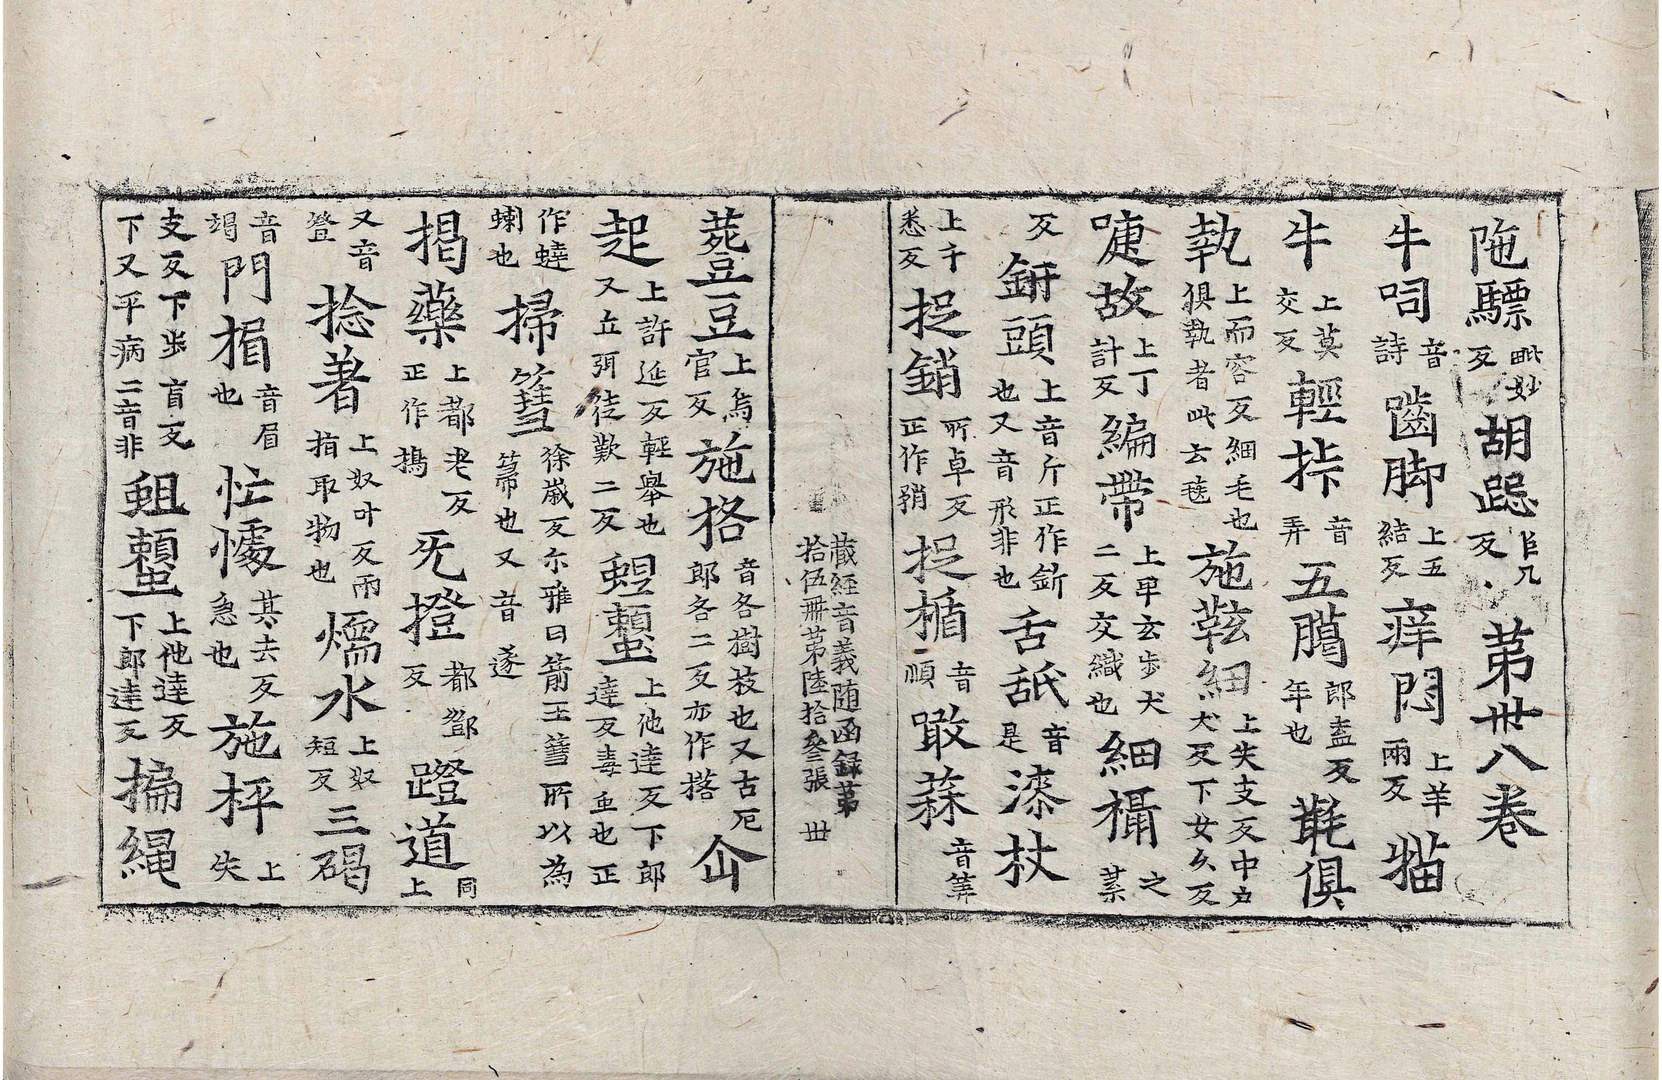 陁驃毗妙反胡跽巨几反第丗八卷
牛呞音詩齒脚上五結反痒悶上羊兩反猫
牛上莫交反輕挊音弄五臈郎盍反年也㲨俱
執上而容反細毛也俱執者此去毯施鞐細上失支反中户犬反下女久反
嚏故上丁計反編帶上卑玄步犬二反交織也細襵之葉
反鈃頭上音斤正作釿也又音形非也舌舐音是漆杖
上千悉反捉銷所卓反正作矟捉楯音順噉蒜音筭
藏經音義随函録第拾伍冊第陸拾叄張 丗
䓆豆上烏官反施格音各樹枝也又古厄郎各二反亦作㨯企
起上許延反輕舉也又立弭徒歎二反蝗蠆上他達反下郎達反毒虫也正
作蟯蝲也掃篲徐歲反尔雅曰箭王篲所以為篲也又音遂
搗藥上都老反正作擣旡撜都鄧反蹬道上同
又音登捻著上奴叶反兩指取物也煗水上奴短反三碣
音竭門楣音眉也忙懅其去反急也施枰上失
支反下步盲反下又平病二音非䖧蠆上他達反下郎達反揙繩